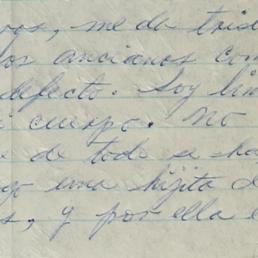 vos, me da tris
os ancianos com
defecto. Soy lim
i cuerpo. No
e de todo se ha
go una hijita d
s, y por ella e